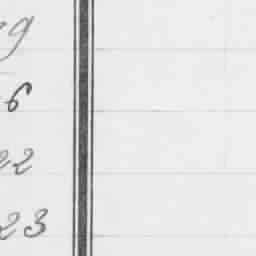 9
6
22
23